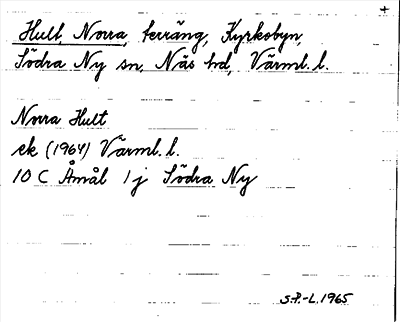 Hult, Norra, terräng, Kyrkobyn,
Södra Ny sn, Näs hd, Värml. l.
Norra Hult
ek (1964) Värml. l.
10 C Åmål 1 j Södra Ny
S.P.-L. 1965